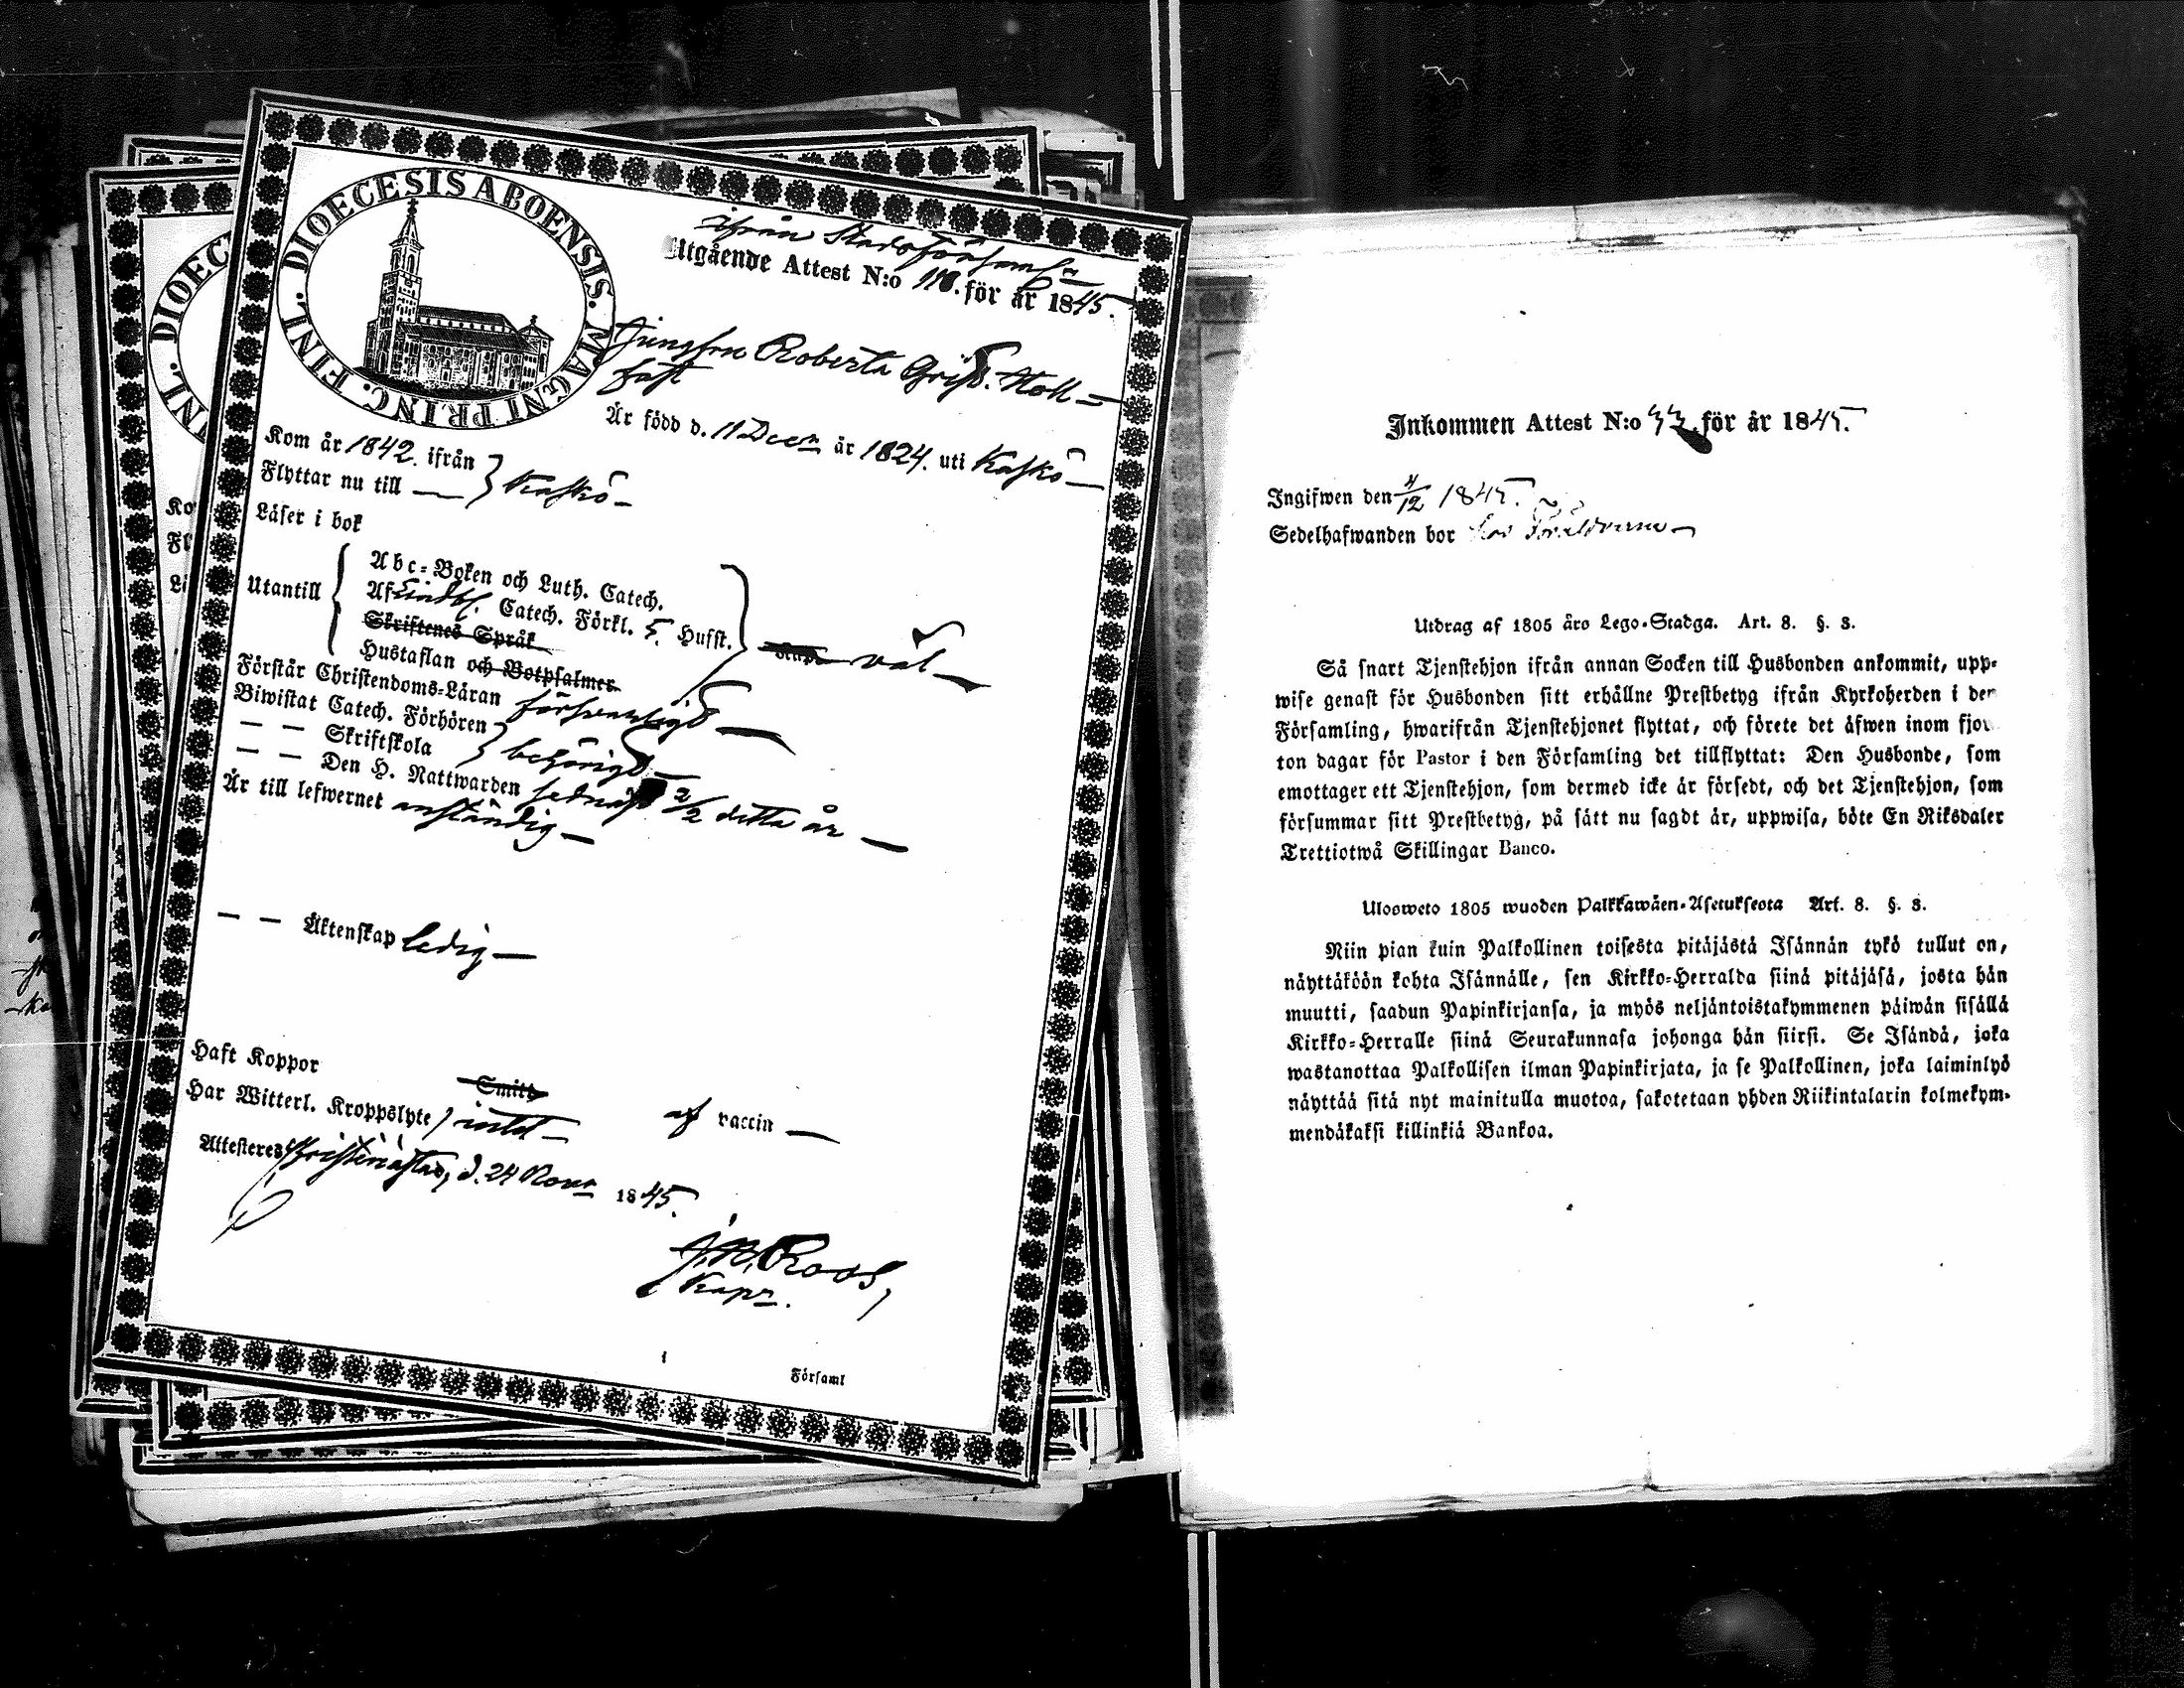 DIOECESIS ABOENSIS. MAGNI PRINC. FINL.
ifrån Stadsförsaml.
Utgående Attest N:o 118. för år 1845.
Jungfru Roberta Grist. Holl-
fast
Är född d. 11 Decr år 1824. uti Kaskö
Kom år 1842. ifrån
Flyttar nu till Kaskö
Läser i bok
Utantill
Abc-Boken och Luth. Catech.
Af Lindbl. Catech. Förkl. 5. Hufst.
Skriftenes Språk
Hustaflan och Botpsalmer.
väl
Förstår Christendoms-Läran försvarligt
Biwistat Catech. Förhören
— — Skriftskola
behörigt
— — Den H. Nattwarden sednast 2/2 detta år
Är till lefwernet anständig
— — Äktenskap ledig
Haft Koppor
Smitt
af vaccin
Har Witterl. Kroppslyte intet
Attesteras Christinæstad, d. 24 Novr 1845.
J. W. Roos,
Kapn.
Församl
DIOEC
INL.
Ko
Fl
Lä
Inkommen Attest N:o 33 för år 1845.
Ingifwen den 4/12 1845.
Sedelhafwanden bor hos Föräldrarne
Utdrag af 1805 års Lego-Stadga. Art. 8. §. 3.
Så snart Tjenstehjon ifrån annan Socken till Husbonden ankommit, upp-
wise genast för Husbonden sitt erhållne Prestbetyg ifrån Kyrkoherden i den
Församling, hwarifrån Tjenstehjonet flyttat, och förete det äfwen inom fjor-
ton dagar för Pastor i den Församling det tillflyttat: Den Husbonde, som
emottager ett Tjenstehjon, som dermed icke är försedt, och det Tjenstehjon, som
försummar sitt Prestbetyg, på sätt nu sagdt är, uppwisa, böte En Riksdaler
Trettiotwå Skillingar Banco.
Ulosweto 1805 wuoden Palkkawäen-Asetuksesta Art. 8. §. 3.
Niin pian kuin Palkollinen toisesta pitäjästä Isännän tykö tullut on,
näyttäköön kohta Isännälle, sen Kirkko-Herralda siinä pitäjäsä, josta hän
muutti, saadun Papinkirjansa, ja myös neljäntoistakymmenen päiwän sisällä
Kirkko-Herralle siinä Seurakunnasa johonga hän siirsi. Se Isändä, joka
wastanottaa Palkollisen ilman Papinkirjata, ja se Palkollinen, joka laiminlyö
näyttää sitä nyt mainitulla muotoa, sakotetaan yhden Riikintalarin kolmekym-
mendäkaksi killinkiä Bankoa.